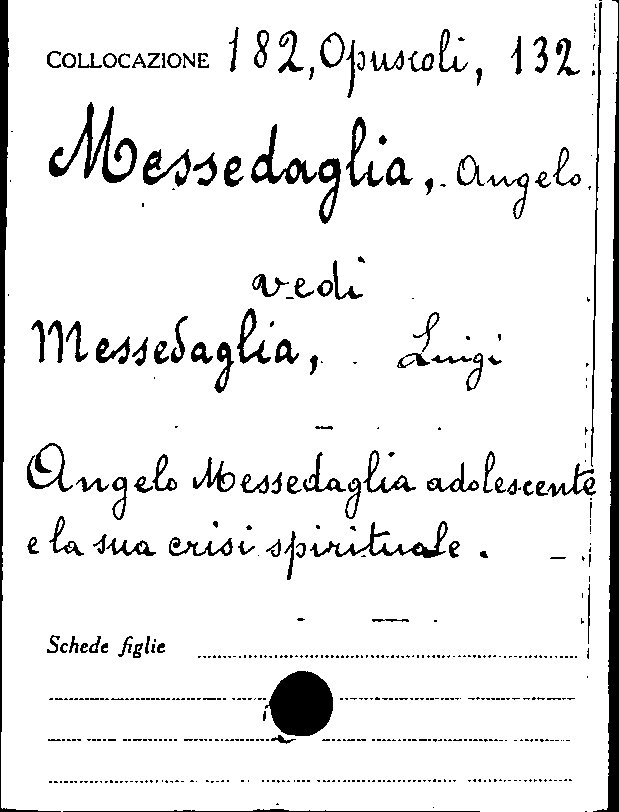 COLLOCAZIONE 182, Opuscoli, 132
Messedaglia, Angelo
vedi
Messedaglia, Luigi
Angelo Messedaglia adolescente
e la sua crisi spirituale.
Schede figlie